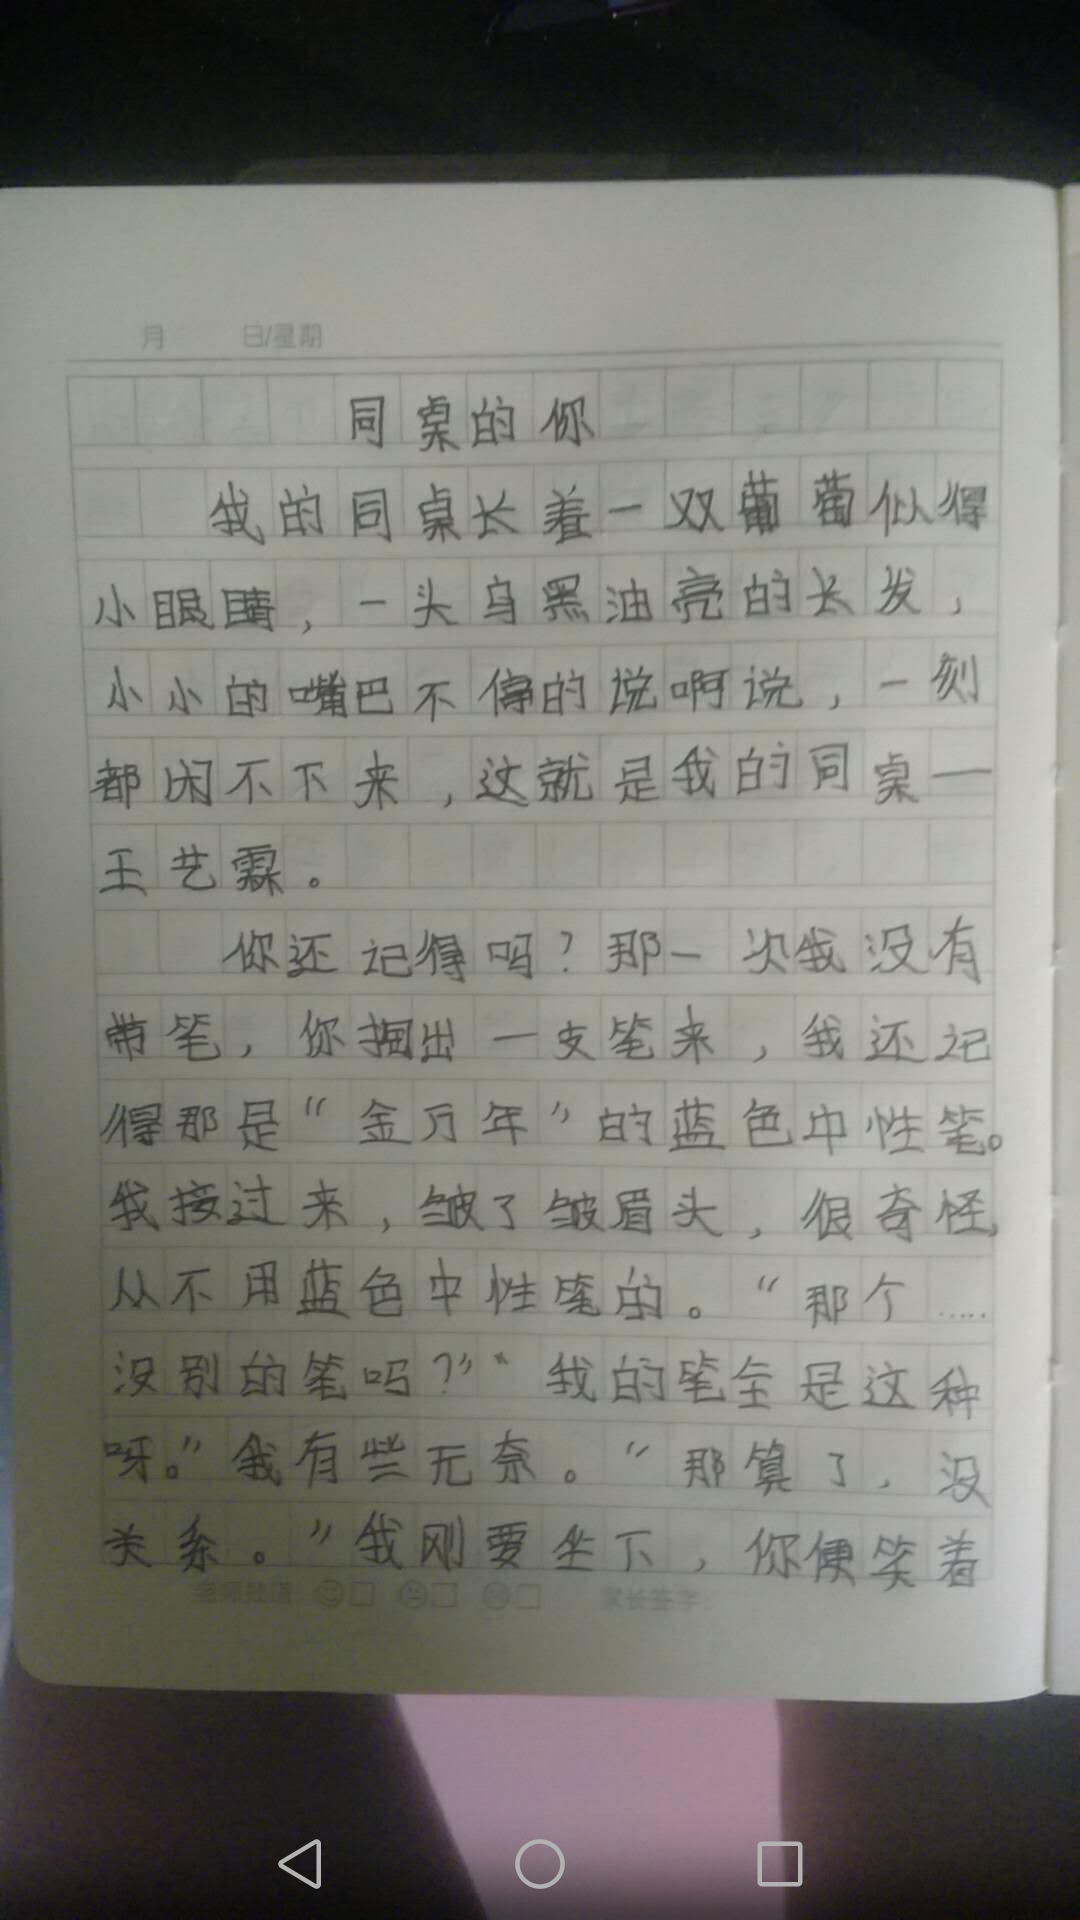 月 日/星期
同桌的你
我的同桌长着一双葡萄似得
小眼睛，一头乌黑油亮的长发，
小小的嘴巴不停的说啊说，一刻
都闲不下来，这就是我的同桌—
王艺霖。
你还记得吗？那一次我没有
带笔，你掏出一支笔来，我还记
得那是“金万年”的蓝色中性笔。
我接过来，皱了皱眉头，很奇怪，
从不用蓝色中性笔的。“那个……
没别的笔吗？”“我的笔全是这种
呀。”我有些无奈。“那算了，没
关系。”我刚要坐下，你便笑着
家长签字：